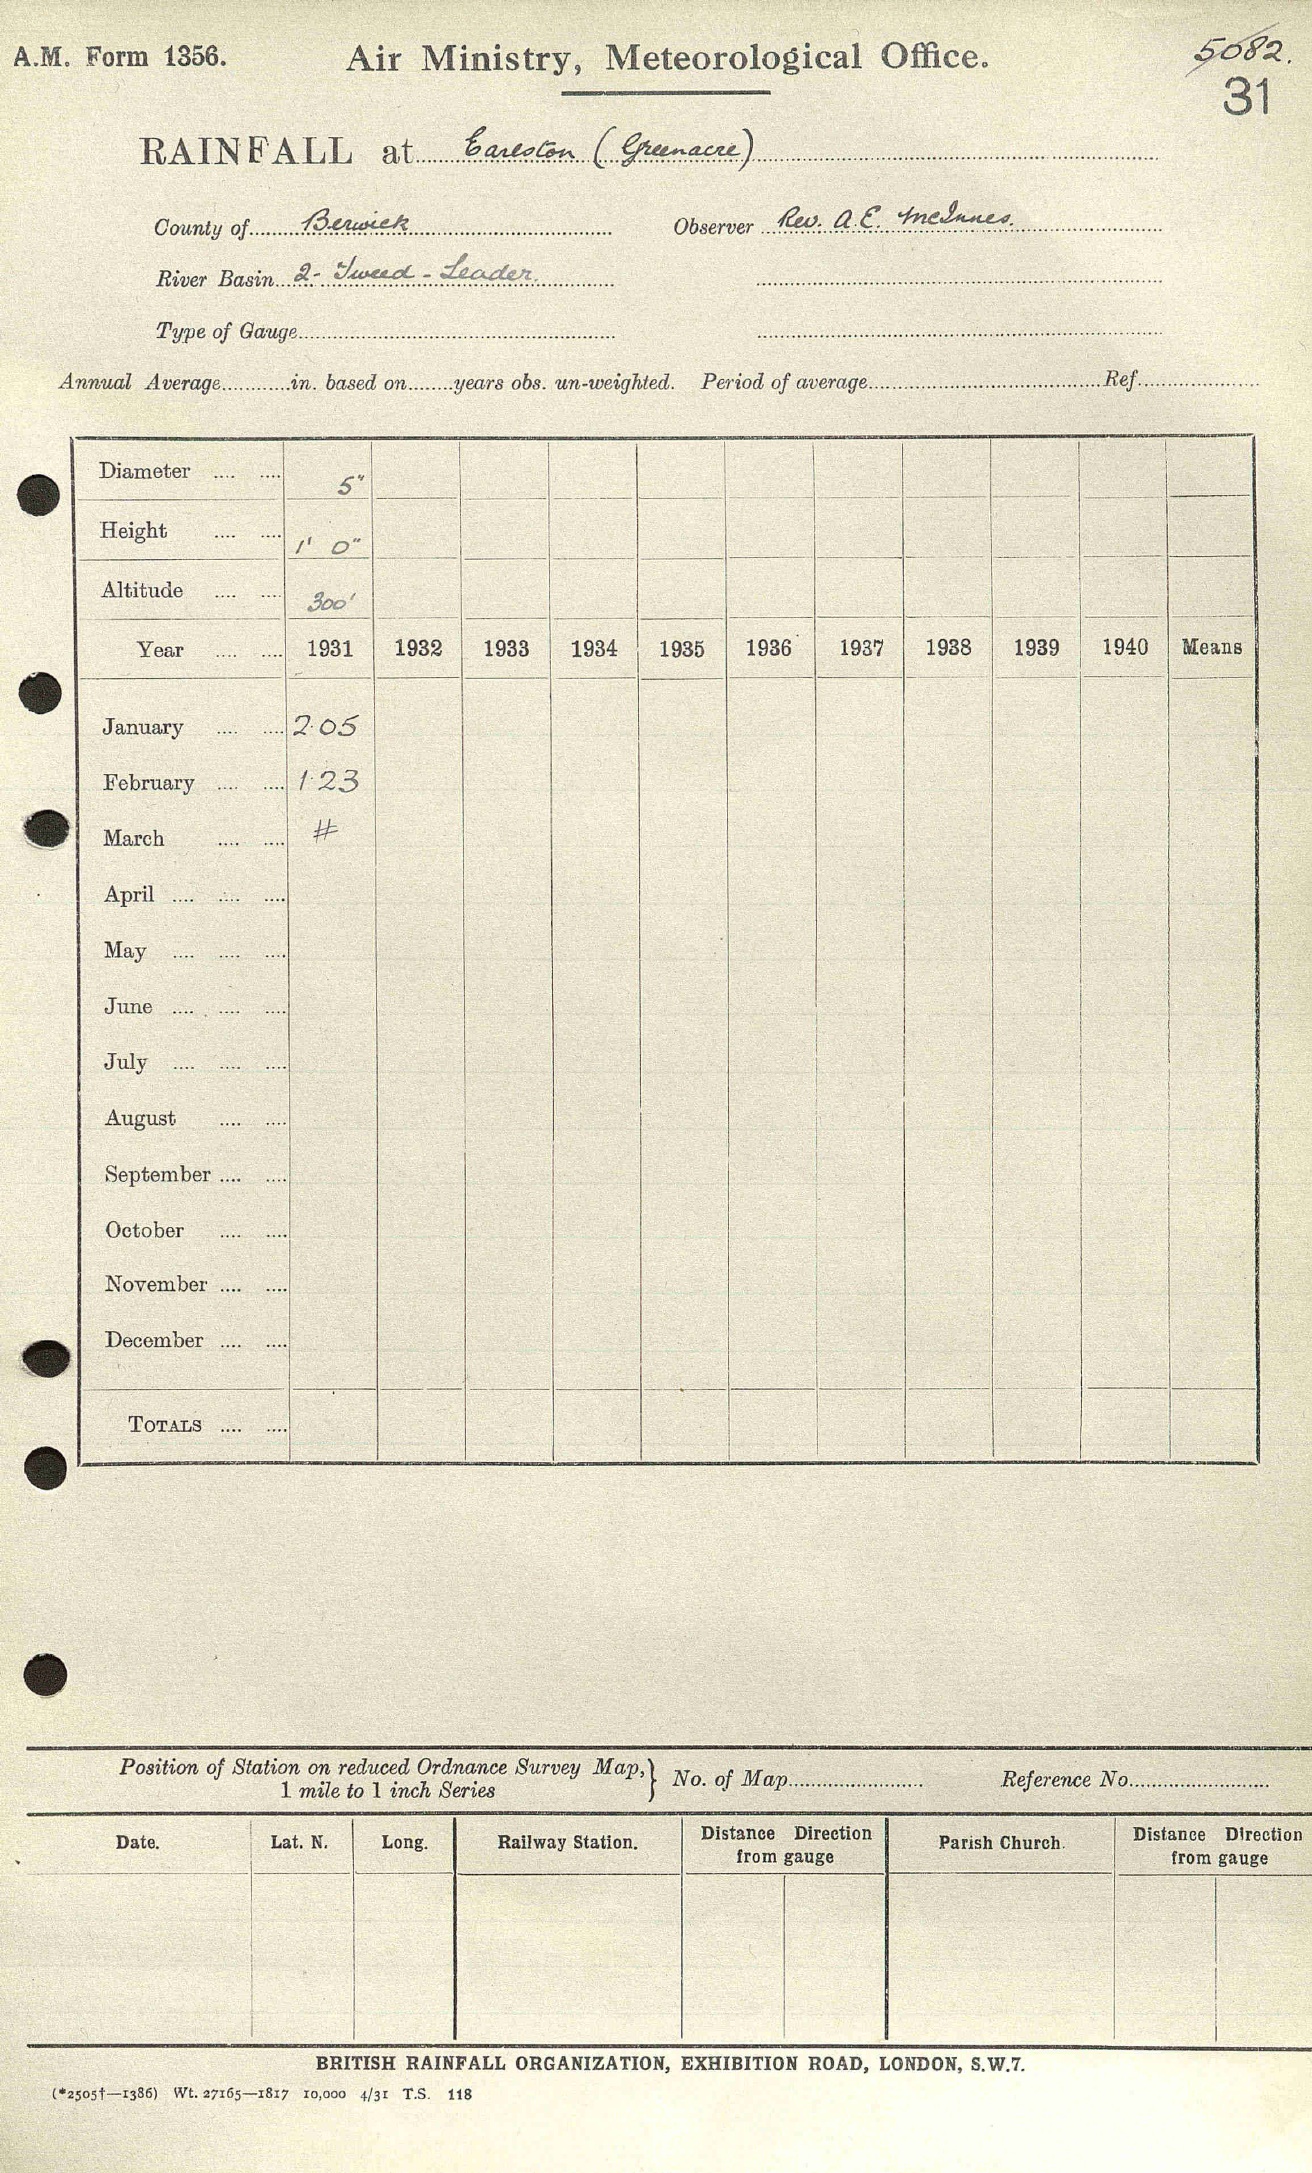 A.M. Form 1356.
Air Ministry, Meteorological Office.
5082.
31
RAINFALL at Earlston (Greenacre)
County of Berwick
Observer Rev. A.E. McInnes.
River Basin 2- Tweed - Leader.
Type of Gauge
Annual Average in. based on years obs. un-weighted. Period of average Ref.
Diameter 5"
Height 1' 0"
Altitude 300'
Year 1931 1932 1933 1934 1935 1936 1937 1938 1939 1940 Means
January 2.05
February 1.23
March #
April
May
June
July
August
September
October
November
December
TOTALS
Position of Station on reduced Ordnance Survey Map,}
1 mile to 1 inch Series
No. of Map
Reference No.
Date. Lat. N. Long. Railway Station. Distance Direction from gauge Parish Church. Distance Direction from gauge
BRITISH RAINFALL ORGANIZATION, EXHIBITION ROAD, LONDON, S.W.7.
(*2505†—1386) Wt. 27165—1817 10,000 4/31 T.S. 118